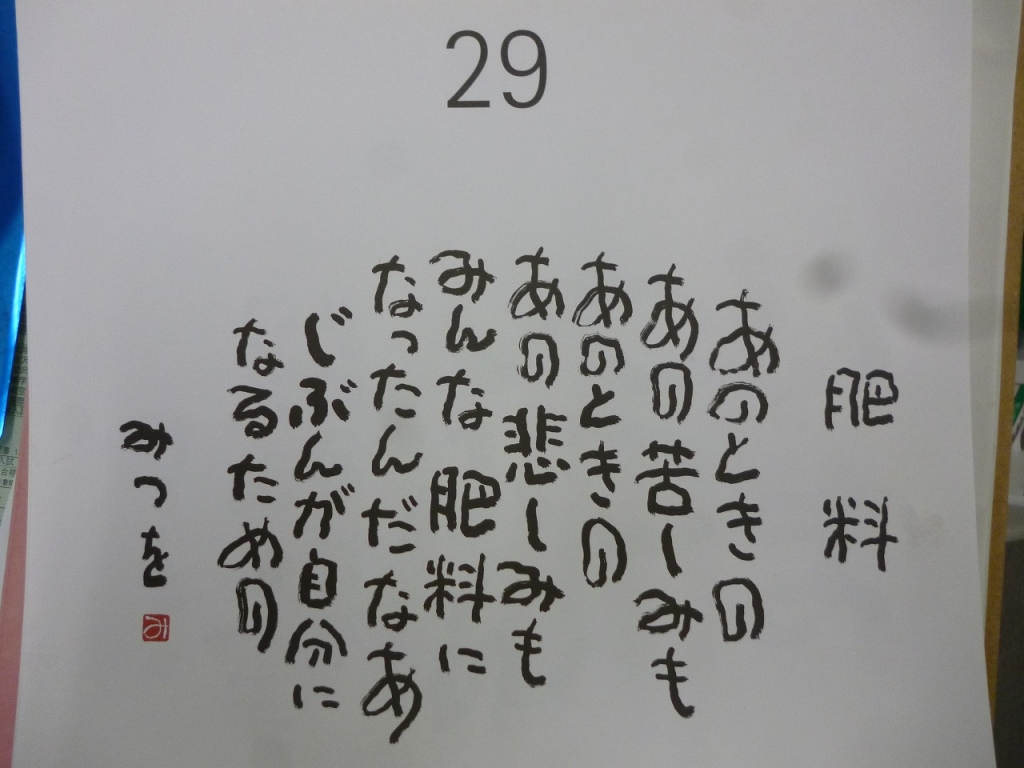 29
肥料
あのときの
あの苦しみも
あのときの
あの悲しみも
みんな肥料に
なったんだなあ
じぶんが自分に
なるための
みつを
み